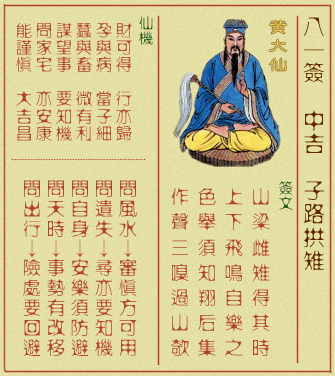 八一簽 中吉 子路拱雉
黃大仙
簽文
山梁雌雉得其時
上下飛鳴自樂之
色舉須知翔后集
作聲三嗅過山欹
仙機
財可得 行亦歸
孕與病 當子細
蠶與畜 微有利
謀望事 要知機
問家宅 亦安康
能謹慎 大吉昌
問風水→審慎方可用
問遺失→尋亦要知機
問自身→安樂須防避
問天時→事勢有改移
問出行→險處要回避